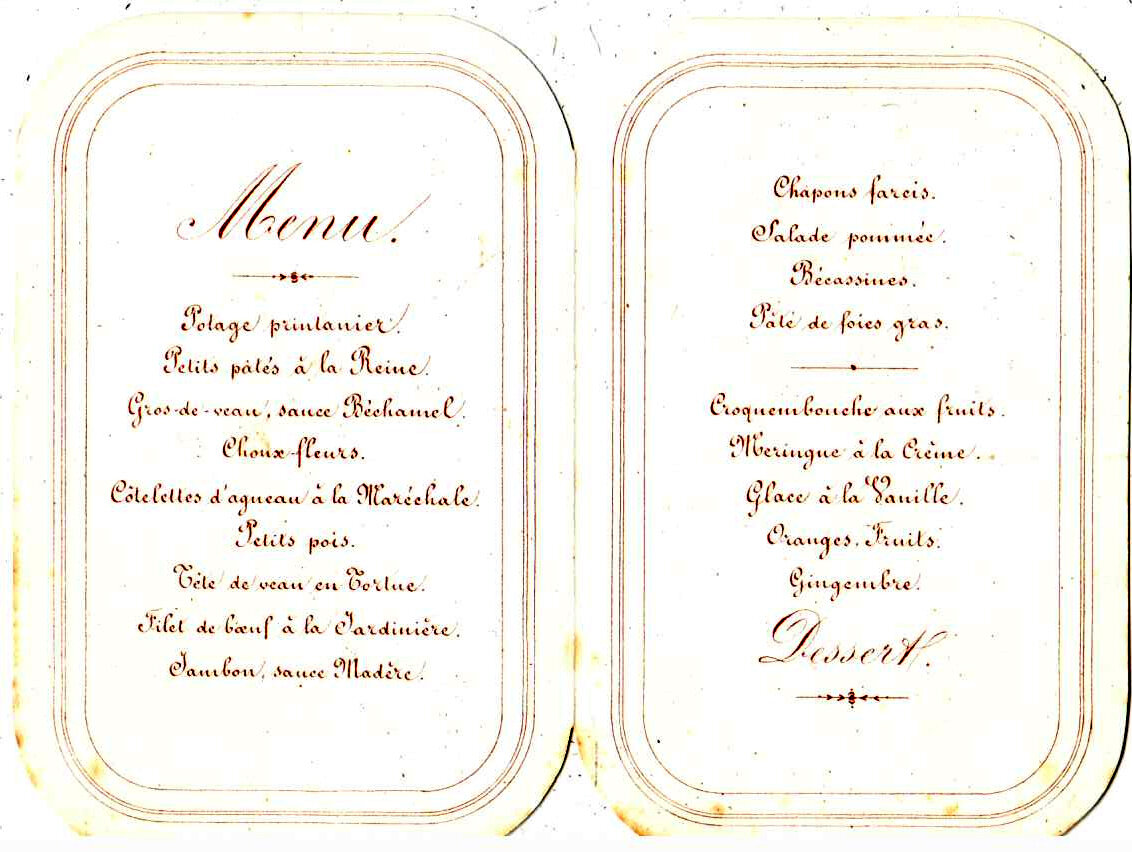 Menu.
Potage printanier.
Petits pâtés à la Reine.
Gros-de-veau, sauce Béchamel.
Choux-fleurs.
Côtelettes d'agneau à la Maréchale.
Petits pois.
Tête de veau en Tortue.
Filet de bœuf à la Jardinière.
Jambon, sauce Madère.
Chapons farcis.
Salade pommée.
Bécassines.
Pâté de foies gras.
Croquembouche aux fruits.
Meringue à la Crème.
Glace à la Vanille.
Oranges. Fruits.
Gingembre.
Dessert.